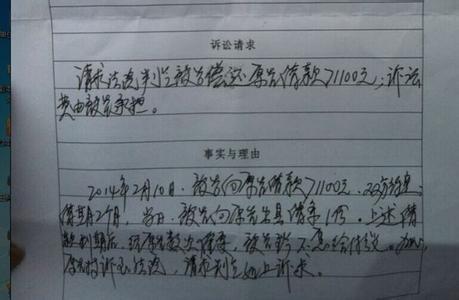 诉讼请求
请求法院判令被告偿还原告借款71100元;诉讼
费由被告承担。
事实与理由
2014年2月10日,被告向原告借款71100元,双方约定
借期2个月,当日,被告向原告出具借条1份。上述借
款到期后,经原告数次催要,被告
原告特诉至法院,请求判如上诉求。